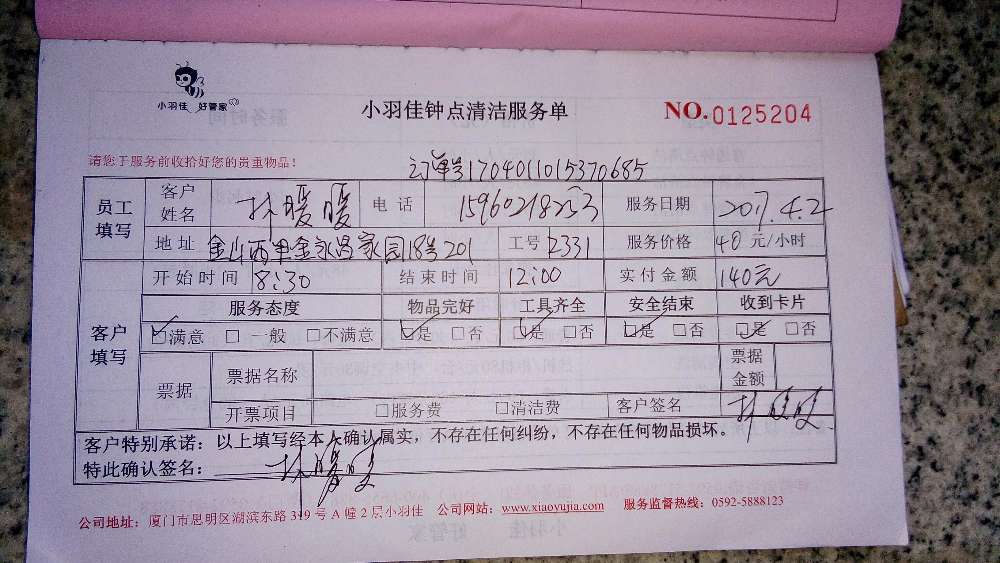 小羽佳 好管家
小羽佳钟点清洁服务单
NO.0125204
请您于服务前收拾好您的贵重物品！
订单号1704011015370685
员工填写 客户姓名 林暖暖 电话 服务日期 2017.4.2
地址 金山西里金永昌家园18号201 工号 2331 服务价格 40元/小时
客户填写 开始时间 8:30 结束时间 12:00 实付金额 140元
服务态度 物品完好 工具齐全 安全结束 收到卡片
☑满意 □一般 □不满意 ☑是 □否 ☑是 □否 ☑是 □否 ☑是 □否
票据 票据名称 票据金额
开票项目 □服务费 □清洁费 客户签名 林暖暖
客户特别承诺：以上填写经本人确认属实，不存在任何纠纷，不存在任何物品损坏。
特此确认签名：林暖暖
公司地址：厦门市思明区湖滨东路319号A幢2层小羽佳 公司网站：www.xiaoyujia.com 服务监督热线：0592-5888123